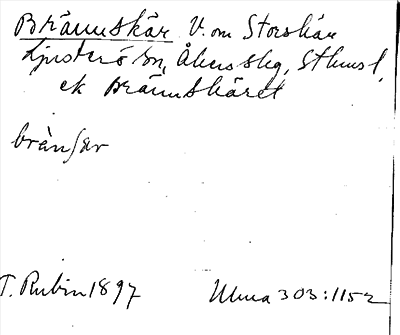 Brännskär V. om Storskär
Ljusterö sn, Åkers skg, Sthms l,
ek Brännskäret
brànſar
T. Rubin 1897 Ulma 303:1152